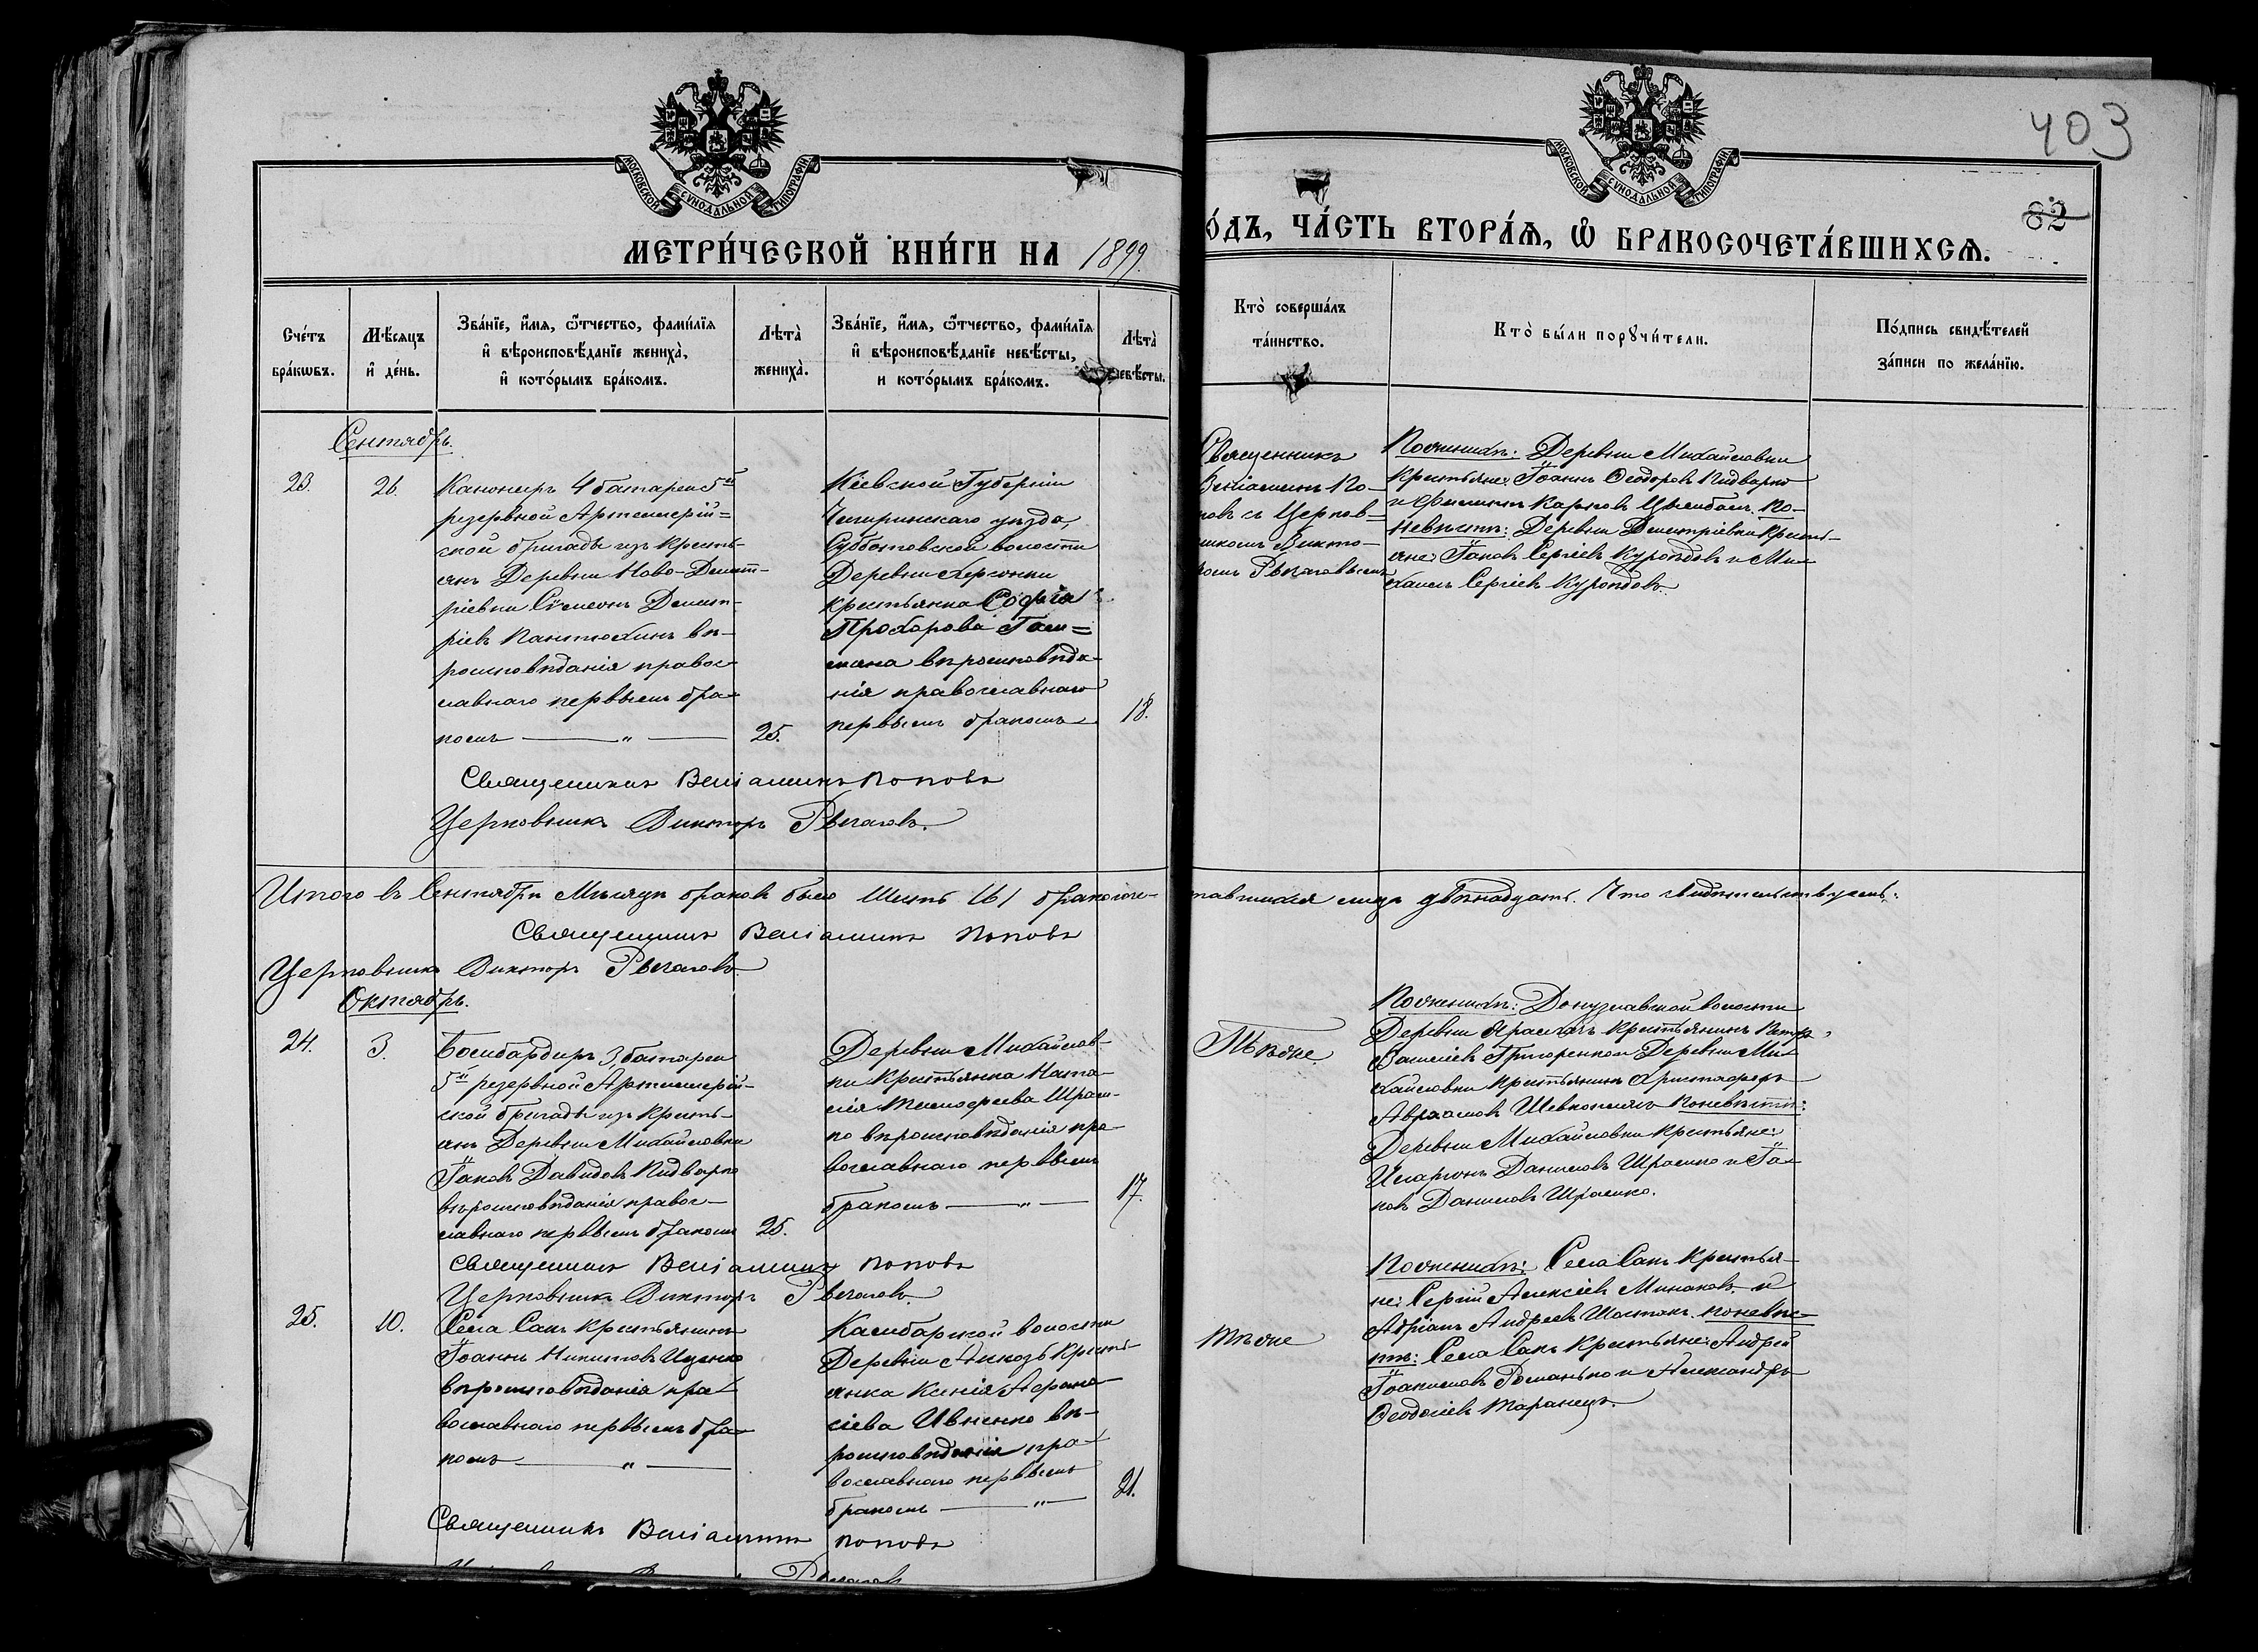 403
82
МОСКОВСКОЙ СѴНОДАЛЬНОЙ ТИПОГРАФІИ
МОСКОВСКОЙ СѴНОДАЛЬНОЙ ТИПОГРАФІИ
МЕТРИ́ЧЕСКОЙ КНИ́ГИ НА 1899
О́ДЪ, ЧА́СТЬ ВТОРА́Ѧ, Ѡ҆ БРАКОСОЧЕТА́ВШИХСѦ.
Сче́тъ
бра́кѡвъ.
Мѣ́сяцъ
и҆ де́нь.
Зва́нїе, и҆́мя, ѻ҆́тчество, фами́лїя
и҆ вѣроисповѣ́данїе жениха̀,
и҆ кото́рымъ бра́комъ.
Лѣта̀
жениха̀.
Зва́нїе, и҆́мя, ѻ҆́тчество, фами́лїя
и҆ вѣроисповѣ́данїе невѣ́сты,
и кото́рымъ бра́комъ.
Лѣта̀
невѣ́сты.
Кто̀ соверша́лъ
та́инство.
Кто̀ бы́ли порꙋчи́тели.
По́дпись свидѣ́телей
за́писи по жела́нїю.
Сентябрь.
23.
26.
Канониръ 4 батареи 5й
резервной Артиллерій=
ской бригады изъ кресть-
янъ Деревни Ново-Димит-
ріевки Сѵмеонъ Димит-
ріевъ Пантюхинъ вѣ-
роисповѣданія правос-
лавнаго первымъ бра-
комъ — „ —
25.
Кіевской Губерніи
Чигиринскаго уѣзда,
Субботовской волости
Деревни
крестьянка Софія
Прохорова Гай=
вѣроисповѣда-
нія православнаго
первымъ бракомъ
18.
Священникъ
Веніаминъ По-
повъ съ Церков-
никомъ Викто-
ромъ Рычаговымъ
По женихѣ: Деревни Михайловки
крестьяне: Іоаннъ Ѳеодоровъ Кидварко
и Филиппъ Карповъ Цымбалъ. По
невѣстѣ: Деревни Димитріевки кресть-
яне: Іаковъ Сергіевъ Куропдовъ и Ми-
хаилъ Сергіевъ Куропдовъ.
Священникъ Веніаминъ Поповъ
Церковникъ Викторъ Рычаговъ.
Итого въ Сентябрѣ Мѣсяцѣ браковъ было шесть (6) бракосоче-
тавшихся лицъ двѣнадцать. Что свидѣтельствуемъ:
Священникъ Веніаминъ Поповъ
Церковникъ Викторъ Рычаговъ
Октябрь.
24.
3.
Бомбардиръ 3 батареи
5й резервной Артиллерій-
ской бригады изъ кресть-
янъ Деревни Михайловки
Іаковъ Давидовъ Кидварко
вѣроисповѣданія правос-
лавнаго первымъ бракомъ
25.
Деревни Михайлов-
ки Крестьянка Ната-
лія Тимоѳеева Шрам-
ко вѣроисповѣданія пра-
вославнаго первымъ
бракомъ — „ —
17.
Тѣ же
По женихѣ: Донузлавской волости
Деревни крестьянинъ Петръ
Василіевъ Григоренко и Деревни Ми-
хайловки крестьянинъ Христофоръ
Авраамовъ По невѣстѣ:
Деревни Михайловки крестьяне:
Иларіонъ Даниловъ Шрамко и Іа-
ковъ Даниловъ Шрамко.
Священникъ Веніаминъ Поповъ
Церковникъ Викторъ Рычаговъ.
25.
10.
Села Саки Крестьянинъ
Іоаннъ Никитовъ Иценко
вѣроисповѣданія пра-
вославнаго первымъ бра-
комъ — „ —
Камбарской волости
Деревни Аккозъ Кресть-
янка Ксенія Аѳана-
сіева Ивненко вѣ-
роисповѣданія пра-
вославнаго первымъ
бракомъ — „ —
21.
Тѣ же
По женихѣ: Села Саки Крестья-
не: Сергій Алексіевъ Минаковъ и
Адріанъ Андреевъ Шостакъ. По невѣс-
тѣ: Села Саки Крестьяне: Андрей
Іоакимовъ Романько и Александръ
Ѳеодосіевъ Таранецъ.
Священникъ Веніаминъ Поповъ